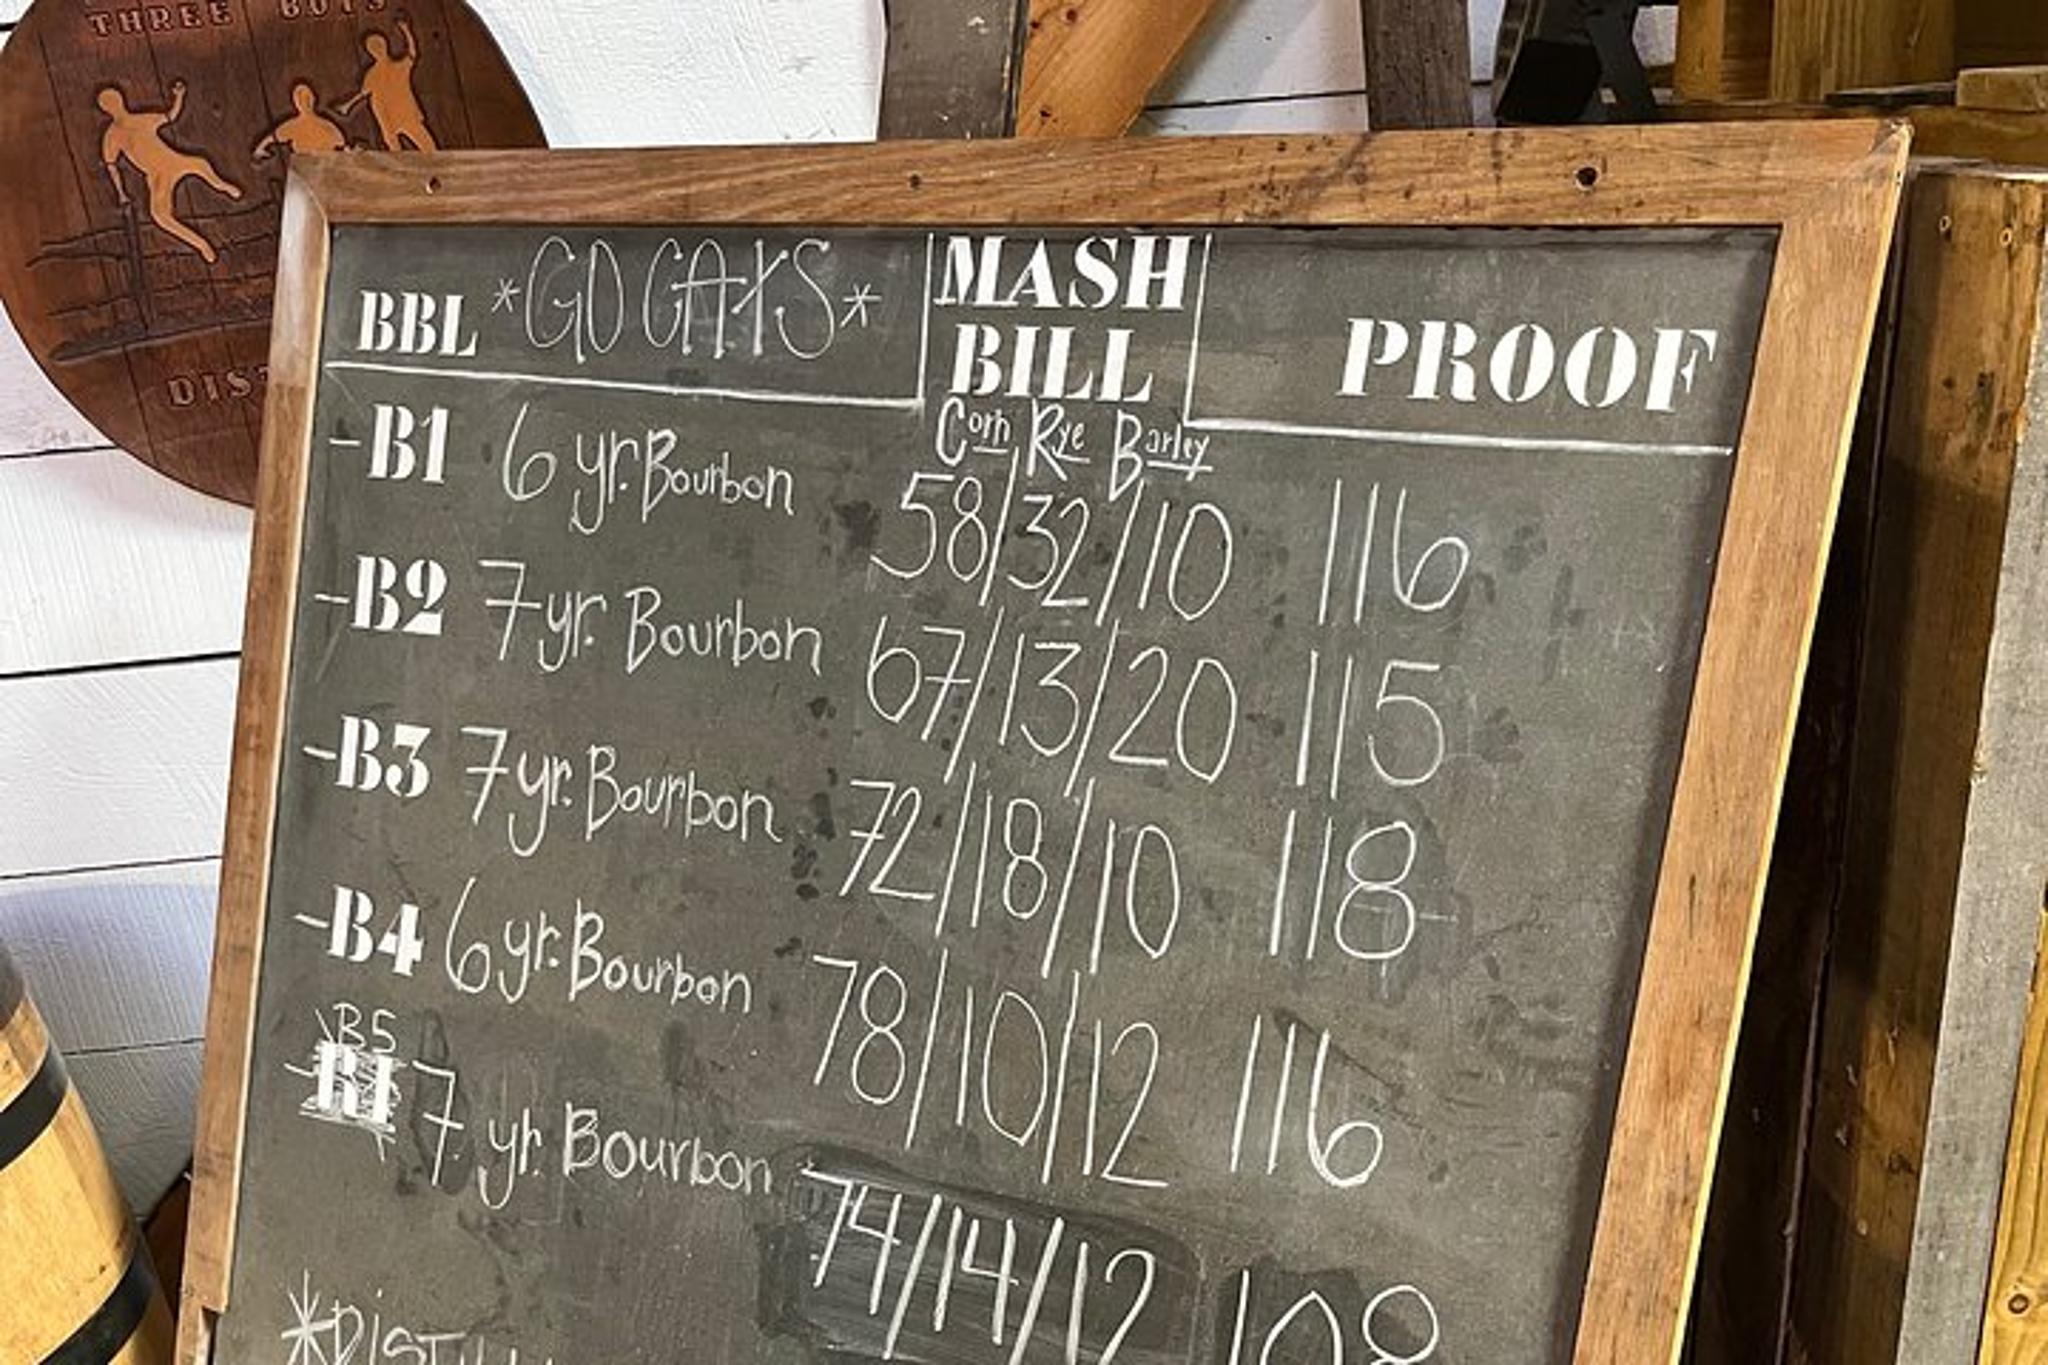 THREE BOYS
BBL *GO CATS* MASH BILL PROOF
Corn Rye Barley
-B1 6 yr. Bourbon 58/32/10 116
-B2 7 yr. Bourbon 67/13/20 115
-B3 7 yr. Bourbon 72/18/10 118
-B4 6 yr. Bourbon 78/10/12 116
B5
-R1 7 yr. Bourbon 74/14/12 108